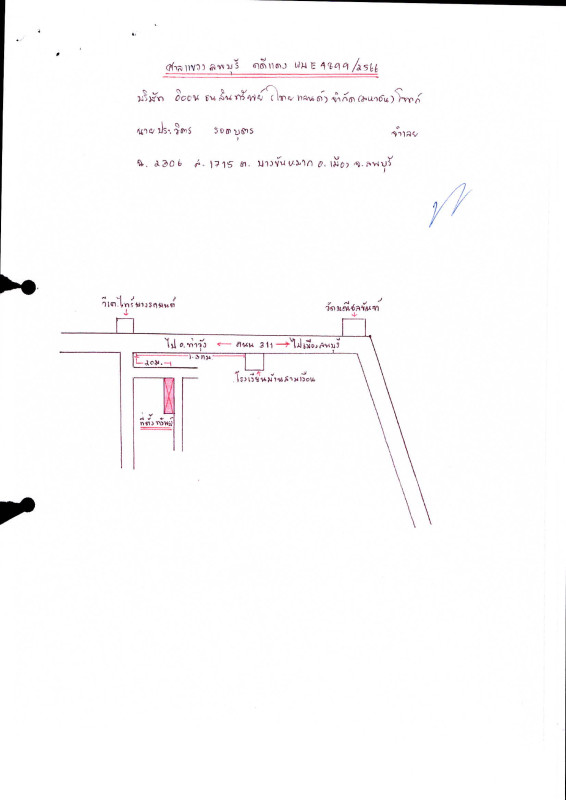 ศาลแขวงลพบุรี คดีแดง ผบE4899/2566
บริษัท อิออน ธนสินทรัพย์ (ไทยแลนด์) จำกัด (มหาชน) โจทก์
นายประวิตร รอดบุตร จำเลย
ฉ. 2306 ล. 1715 ต. บางขันหมาก อ.เมือง จ.ลพบุรี
วัดมณีชลขันฑ์
ไป อ.ท่าวุ้ง ← ถนน 311 → ไปเมืองลพบุรี
1.3 กม.
20 ม.
โรงเรียนบ้านสามเรือน
ที่ตั้งทรัพย์